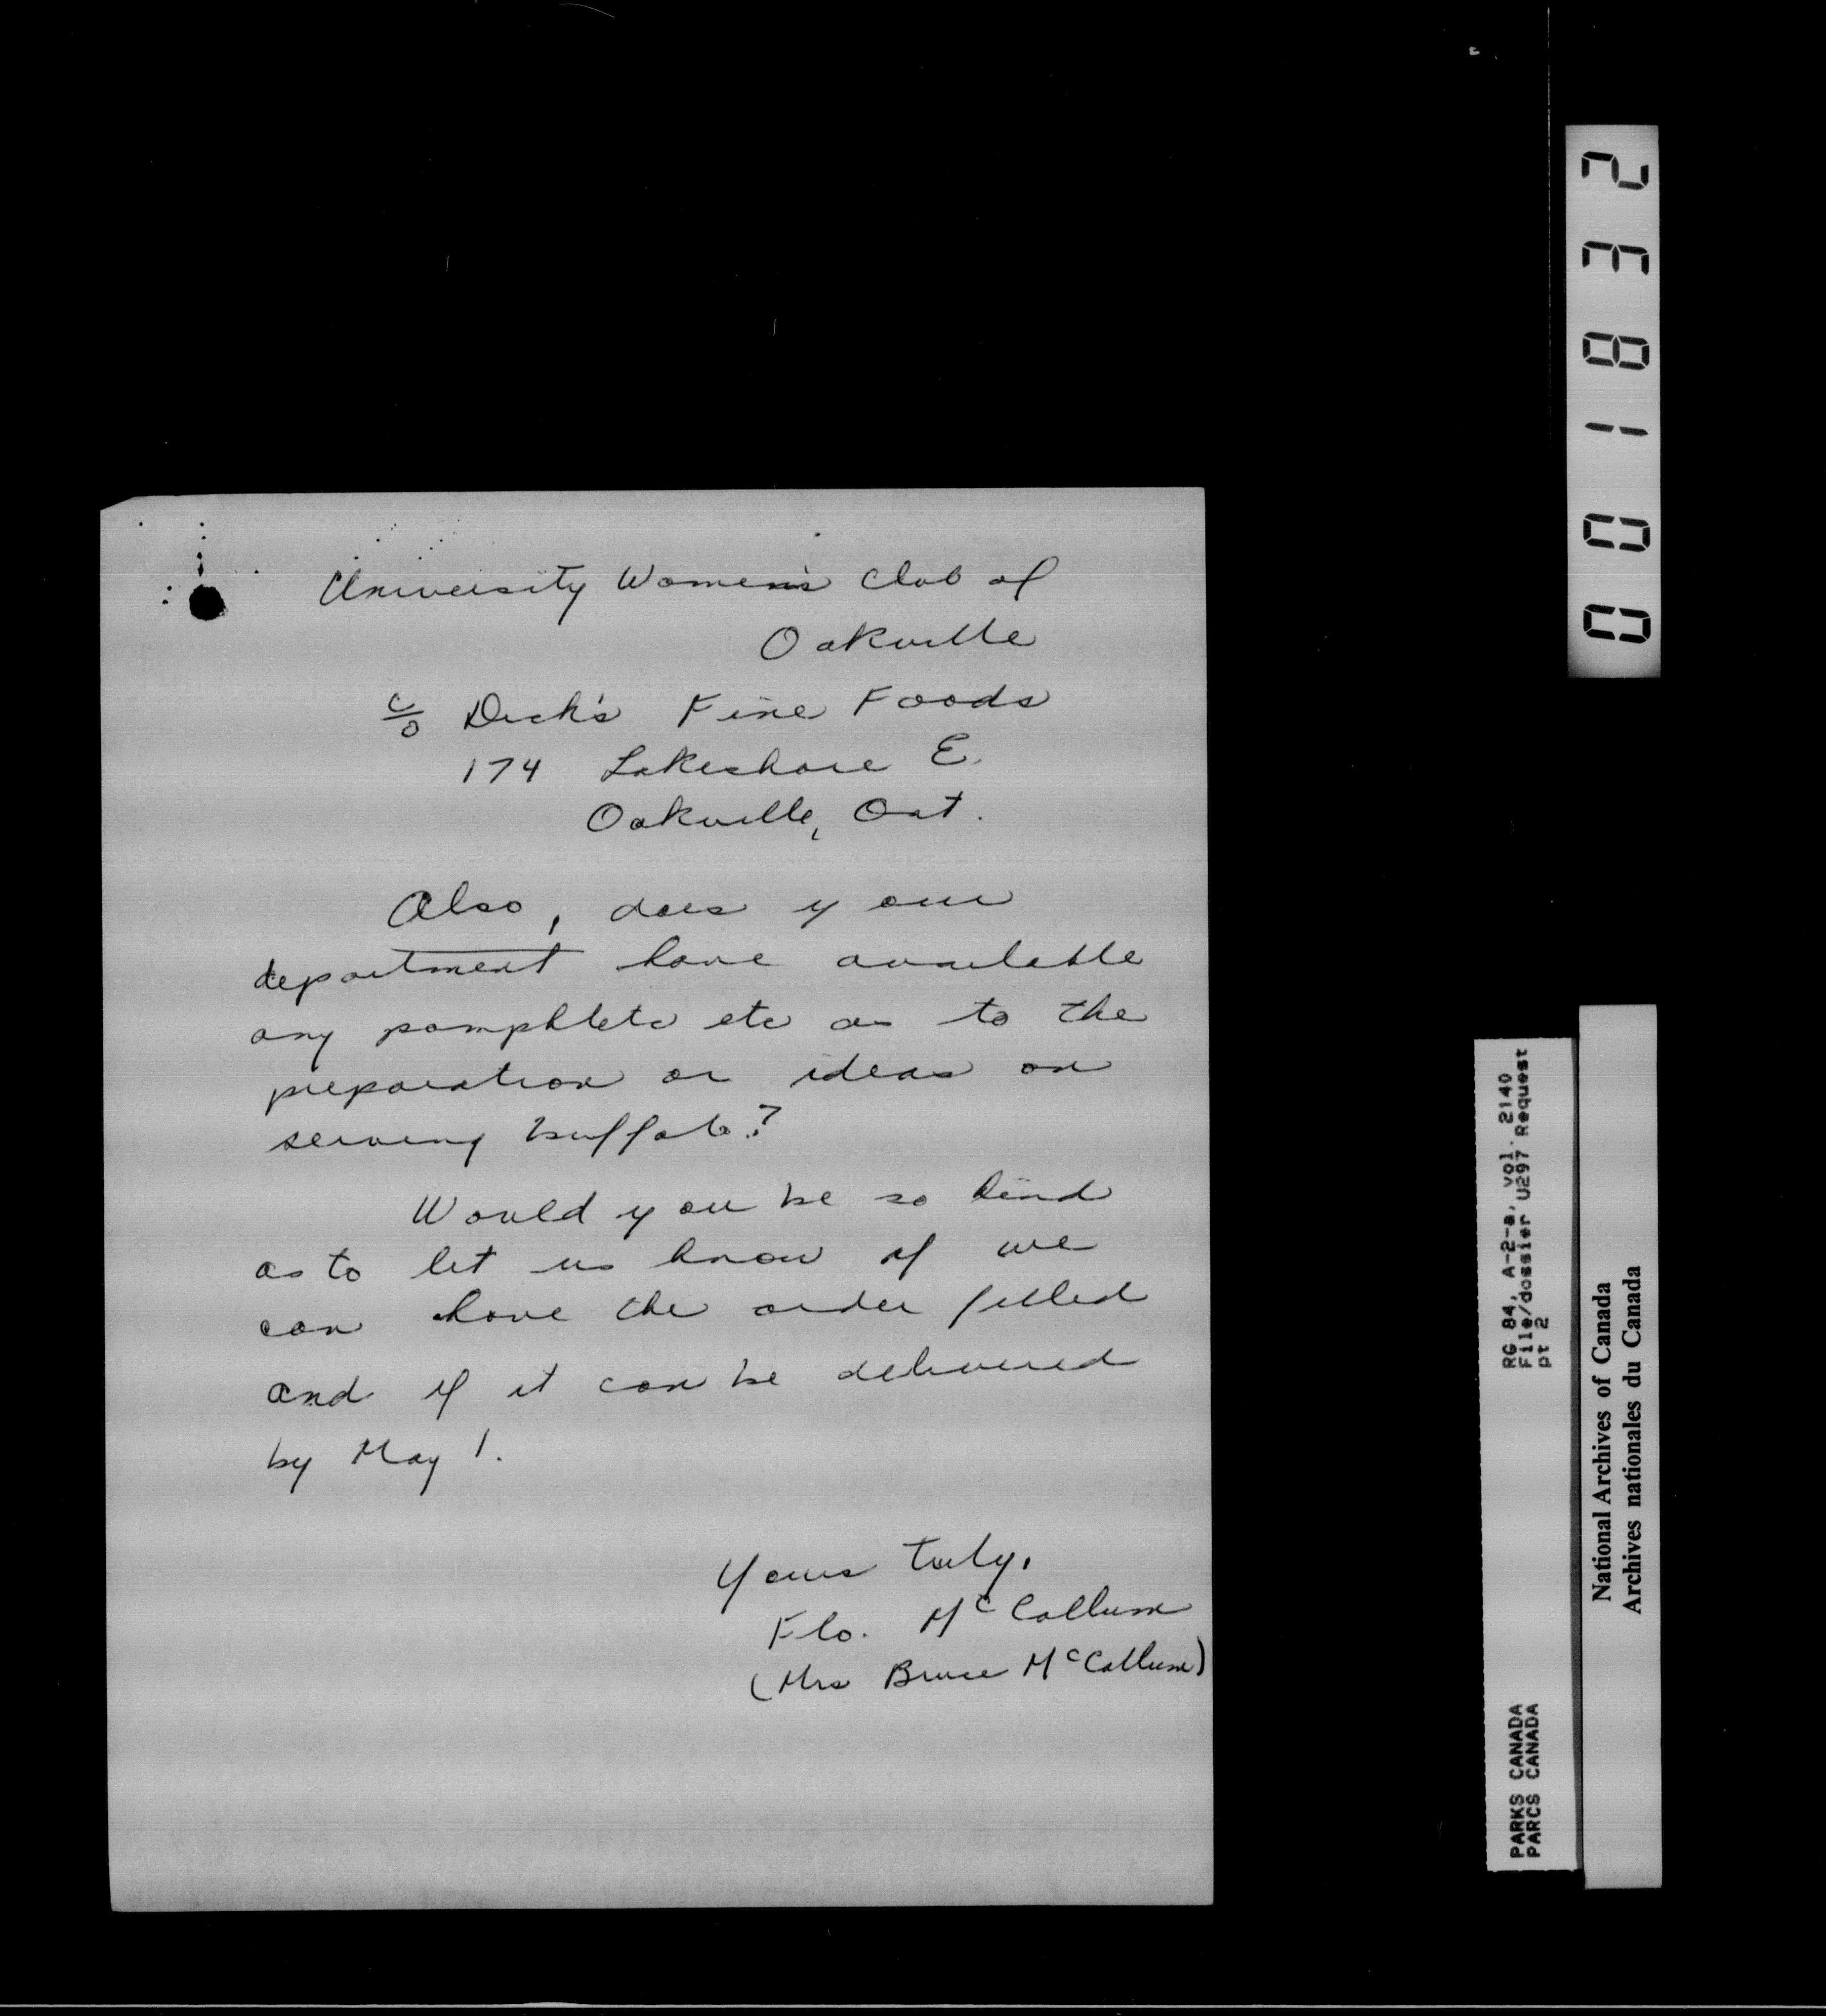 University Women's Club of
Oakville
c/o Dick's Fine Foods
174 Lakeshore E.
Oakville, Ont.
Also, does your
department have available
any pamphlets etc as to the
preparation or ideas on
serving buffalo?
Would you be so kind
as to let us know if we
can have the order filled
and if it can be delivered
by May 1.
Yours truly,
Flo. McCallum
(Mrs Bruce McCallum)
001832
RG 84, A-2-a, vol. 2140
File/dossier U297 Request
pt 2
PARKS CANADA
PARCS CANADA
National Archives of Canada
Archives nationales du Canada